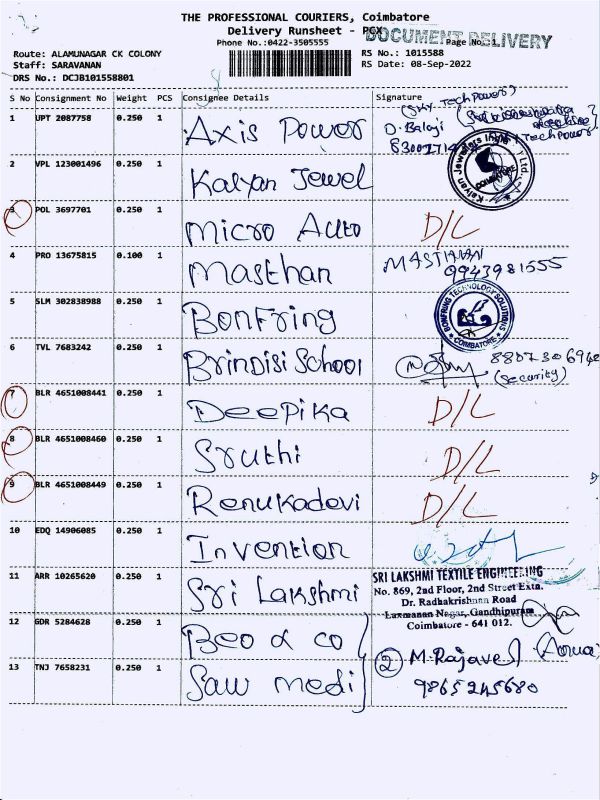 THE PROFESSIONAL COURIERS, Coimbatore
Delivery Runsheet - PCX
DOCUMENT DELIVERY
Phone No.:0422-3505555
Page No.:1
Route: ALAMUNAGAR CK COLONY
RS No.: 1015588
Staff: SARAVANAN
RS Date: 08-Sep-2022
DRS No.: DCJB101558801
S No Consignment No Weight PCS Consignee Details Signature
1 UPT 2087758 0.250 1 Axis Power
(Sky TechPower)
D. Balaji
TechPower
2 VPL 123001496 0.250 1 Kalyan Jewel
Kalyan Jewelers India Ltd.
COIMBATORE
3 POL 3697701 0.250 1 Micro Auto D/L
4 PRO 13675815 0.100 1 Masthan MASTHAN
9943981555
5 SLM 302838988 0.250 1 Bonfring
BONFRING TECHNOLOGY SOLUTIONS
COIMBATORE
6 TVL 7683242 0.250 1 Brindisi School
(Security)
7 BLR 4651008441 0.250 1 Deepika D/L
8 BLR 4651008460 0.250 1 Sruthi D/L
9 BLR 4651008449 0.250 1 Renukadevi D/L
10 EDQ 14906085 0.250 1 Invention
11 ARR 10265620 0.250 1 Sri Lakshmi
SRI LAKSHMI TEXTILE ENGINEERING
No. 869, 2nd Floor, 2nd Street Extn.
Dr. Radhakrishnan Road
Laxmanan Nagar, Gandhipuram
Coimbatore - 641 012.
12 GDR 5284628 0.250 1 Beo & co
13 TNJ 7658231 0.250 1 Saw medi
2 M. Rajavel
9865245680